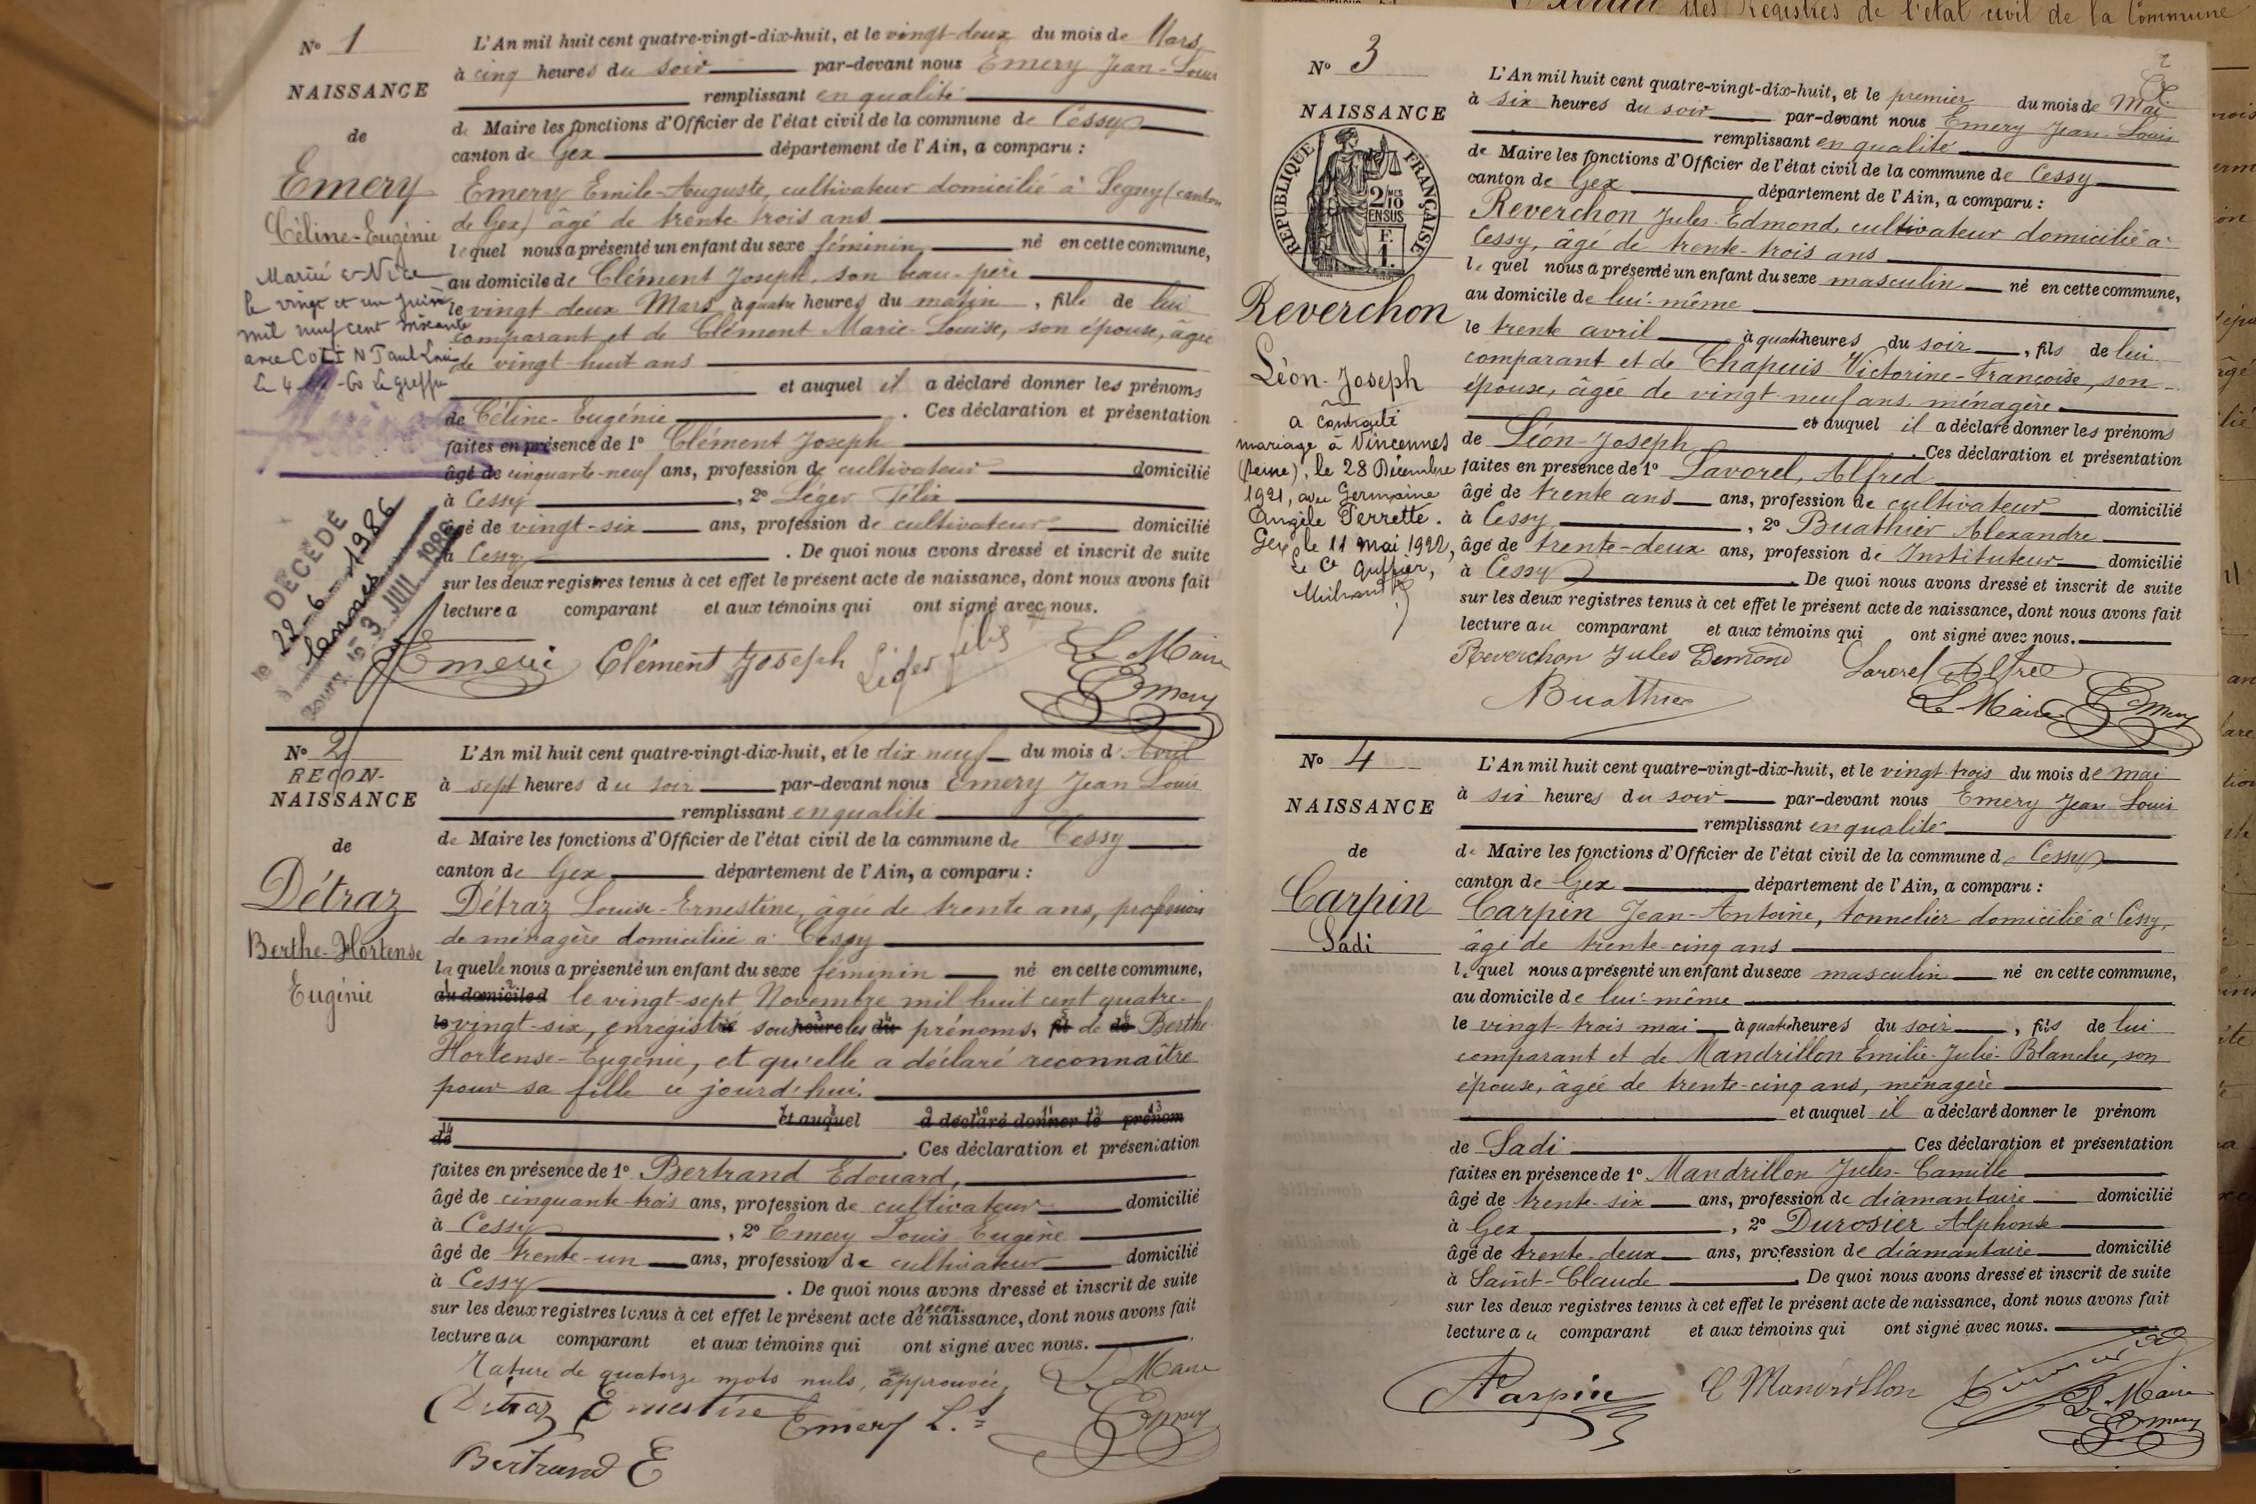 N° 1
NAISSANCE
de
Emery
Céline-Eugénie
Marié à Nice
le vingt et un juin
mil neuf cent soixante
avec COTIN Paul Louis
Le 4 -60 Le greffier
DÉCÉDÉ
le 22-6-1986
à Cannes
Bourg le 3 JUIL 1986
L'An mil huit cent quatre-vingt-dix-huit, et le vingt-deux du mois de Mars
à cinq heures du soir par-devant nous Emery Jean-Louis
remplissant en qualité
de Maire les fonctions d'Officier de l'état civil de la commune de Cessy
canton de Gex département de l'Ain, a comparu :
Emery Emile-Auguste, cultivateur domicilié à Segny (canton
de Gex) âgé de trente trois ans
lequel nous a présenté un enfant du sexe féminin né en cette commune,
au domicile de Clément Joseph, son beau-père
le vingt deux Mars à quatre heures du matin, fille de lui
comparant et de Clément Marie-Louise, son épouse, âgée
de vingt huit ans
et auquel il a déclaré donner les prénoms
de Céline-Eugénie. Ces déclaration et présentation
faites en présence de 1° Clément Joseph
âgé de cinquante-neuf ans, profession de cultivateur domicilié
à Cessy, 2° Léger Félix
âgé de vingt-six ans, profession de cultivateur domicilié
à Cessy. De quoi nous avons dressé et inscrit de suite
sur les deux registres tenus à cet effet le présent acte de naissance, dont nous avons fait
lecture a comparant et aux témoins qui ont signé avec nous.
Emeri Clément Joseph Léger félix Le Maire
Emery
N° 2
RECON-
NAISSANCE
de
Détraz
Berthe-Hortense
Eugénie
L'An mil huit cent quatre-vingt-dix-huit, et le dix neuf du mois d'Avril
à sept heures du soir par-devant nous Emery Jean Louis
remplissant en qualité
de Maire les fonctions d'Officier de l'état civil de la commune de Cessy
canton de Gex département de l'Ain, a comparu :
Détraz Louise-Ernestine, âgée de trente ans, profession
de ménagère domiciliée à Cessy
laquelle nous a présenté un enfant du sexe féminin né en cette commune,
au domicile d le vingt-sept Novembre mil huit cent quatre-
le vingt-six, enregistré sous heure les du prénoms, fil de de Berthe
Hortense-Eugénie, et qu'elle a déclaré reconnaître
pour sa fille ce jourd'hui.
et auquel a déclaré donner le prénom
de. Ces déclaration et présentation
faites en présence de 1° Bertrand Edouard,
âgé de cinquante-trois ans, profession de cultivateur domicilié
à Cessy, 2° Emery Louis Eugène
âgé de trente-un ans, profession de cultivateur domicilié
à Cessy. De quoi nous avons dressé et inscrit de suite
recon.
sur les deux registres tenus à cet effet le présent acte de naissance, dont nous avons fait
lecture au comparant et aux témoins qui ont signé avec nous.
Rature de quatorze mots nuls, approuvée, Le Maire
Détraz Ernestine Emery L.s Emery
Bertrand E
Extrait des Registres de l'état civil de la Commune
2
N° 3
NAISSANCE
RÉPUBLIQUE FRANÇAISE
2/10 MES
EN SUS
F.
1.
Reverchon
Léon-Joseph
a contracté
mariage à Vincennes
(Seine), le 28 Décembre
1921, avec Germaine
Angèle Perrette.
Gex, le 11 mai 1922,
Le Cs Greffier,
L'An mil huit cent quatre-vingt-dix-huit, et le premier du mois de Mai
à six heures du soir par-devant nous Emery Jean-Louis
remplissant en qualité
de Maire les fonctions d'Officier de l'état civil de la commune de Cessy
canton de Gex département de l'Ain, a comparu :
Reverchon Jules-Edmond, cultivateur domicilié à
Cessy, âgé de trente-trois ans
lequel nous a présenté un enfant du sexe masculin né en cette commune,
au domicile de lui-même
le trente avril à quatre heures du soir, fils de lui
comparant et de Chapuis Victorine-Françoise, son
épouse, âgée de vingt neuf ans, ménagère
et auquel il a déclaré donner les prénoms
de Léon-Joseph. Ces déclaration et présentation
faites en présence de 1° Lavorel, Alfred
âgé de trente ans ans, profession de cultivateur domicilié
à Cessy, 2° Buathier Alexandre
âgé de trente-deux ans, profession de Instituteur domicilié
à Cessy. De quoi nous avons dressé et inscrit de suite
sur les deux registres tenus à cet effet le présent acte de naissance, dont nous avons fait
lecture au comparant et aux témoins qui ont signé avec nous.
Reverchon Jules Demond Lavorel Alfred
Buathier Le Maire Emery
N° 4
NAISSANCE
de
Carpin
Sadi
L'An mil huit cent quatre-vingt-dix-huit, et le vingt-trois du mois de mai
à six heures du soir par-devant nous Emery Jean-Louis
remplissant en qualité
de Maire les fonctions d'Officier de l'état civil de la commune de Cessy
canton de Gex département de l'Ain, a comparu :
Carpin Jean-Antoine, tonnelier domicilié à Cessy,
âgé de trente-cinq ans
lequel nous a présenté un enfant du sexe masculin né en cette commune,
au domicile de lui-même
le vingt-trois mai à quatre heures du soir, fils de lui
comparant et de Mandrillon Emilie-Julie-Blanche, son
épouse, âgée de trente-cinq ans, ménagère
et auquel il a déclaré donner le prénom
de Sadi Ces déclaration et présentation
faites en présence de 1° Mandrillon Jules-Camille
âgé de trente-six ans, profession de diamantaire domicilié
à Gex, 2° Durosier Alphonse
âgé de trente-deux ans, profession de diamantaire domicilié
à Saint-Claude. De quoi nous avons dressé et inscrit de suite
sur les deux registres tenus à cet effet le présent acte de naissance, dont nous avons fait
lecture au comparant et aux témoins qui ont signé avec nous.
Carpin C Mandrillon Le Maire
Emery